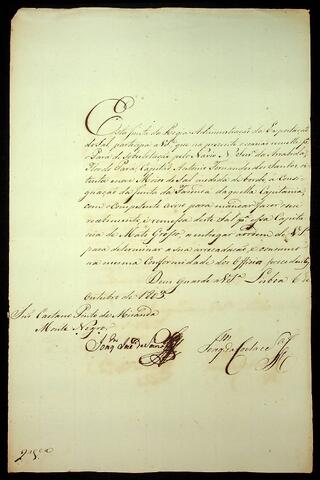 Esta Junta da Regia Administração da Exportação
do Sal, participa a VS.ª que na presente occazião remette p.ª o
Pará de Sobstituição pelo Navio N. Sen.ra da Arrabida,
Flor do Pará, Capitão Antonio Fernandes dos Santos,
tenta e nove Moios de Sal medida de bordo, á Consi-
gnação da Junta da Fazenda daquella Capitania,
com competente avizo para mandar fazer seu
recebimento, e remessa deste Sal p.ª essa Capita-
nia de Mato Grosso, a entregar á ordem de VS.ª
para determinar a sua arrecadação, e consumo
na mesma Conformidade dos Officios precedentes
Deos Guarde a VS.ª Lisboa 6 de
Outubro de 1803
Snr Caetano Pinto de Miranda
Monte Negro
2.ª Via